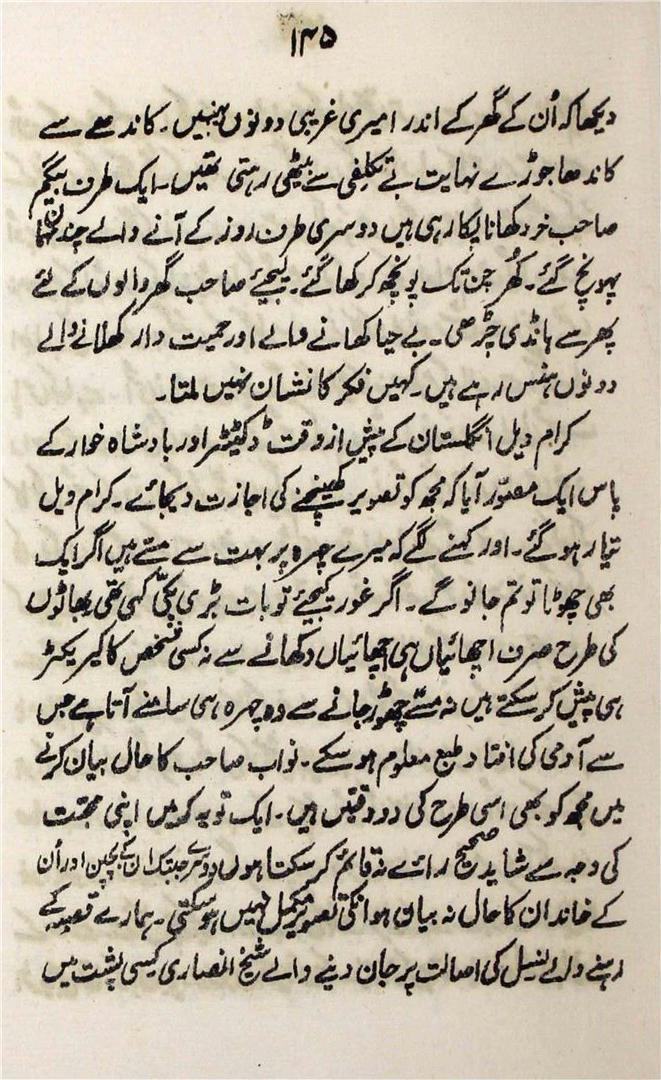 ۱۴۵
دیکھا کہ اُن کے گھر کے اندر امیری غریبی دونوں بہنیں۔ کاندھے سے
کاندھا جوڑے نہایت بے تکلفی سے بیٹھی رہتی تھیں۔ ایک طرف بیگم
صاحب خود کھانا پکا رہی ہیں دوسری طرف روز کے آنے والے چند مہمان
پہونچ گئے۔ کُھرچن تک پونچھ کر کھا گئے۔ لیجئے صاحب گھر والوں کے لئے
پھر سے ہانڈی چڑھی۔ بے حیا کھانے والے اور حمیت دار کھلانے والے
دونوں ہنس رہے ہیں۔ کہیں فکر کا نشان نہیں ملتا۔
کرام ویل انگلستان کے پیش از وقت ڈکٹیٹر اور بادشاہ خوار کے
پاس ایک مصوّر آیا کہ مجھ کو تصویر کھینچنے کی اجازت دیجائے۔ کرام ویل
تیار ہو گئے۔ اور کہنے لگے کہ میرے چہرہ پر بہت سے مسّے ہیں اگر ایک
بھی چھوٹا تو تم جانو گے۔ اگر غور کیجئے تو بات بڑی پکّی کہی تھی بھاٹوں
کی طرح صرف اچھائیاں ہی اچھائیاں دکھانے سے نہ کسی شخص کا کیریکٹر
ہی پیش کر سکتے ہیں نہ مسّے چھوڑ جانے سے وہ چہرہ ہی سامنے آتا ہے جس
سے آدمی کی افتاد طبع معلوم ہو سکے۔ نواب صاحب کا حال بیان کرنے
میں مجھ کو بھی اسی طرح کی دو دقتیں ہیں۔ ایک تو یہ کہ میں اپنی محبّت
کی وجہ سے شاید صحیح رائے نہ قائم کر سکتا ہوں دوسرے جبتک ان کے بچپن اور اُن
کے خاندان کا حال نہ بیان ہو انکی تصویر مکمل نہیں ہو سکتی۔ ہمارے قصبہ کے
رہنے والے نسل کی اصالت پر جان دینے والے شیخ انصاری کیسی پشت میں